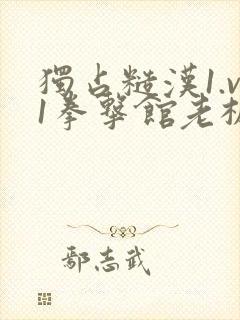 獨占糙漢1.v
1拳擊館老板
鄢志武